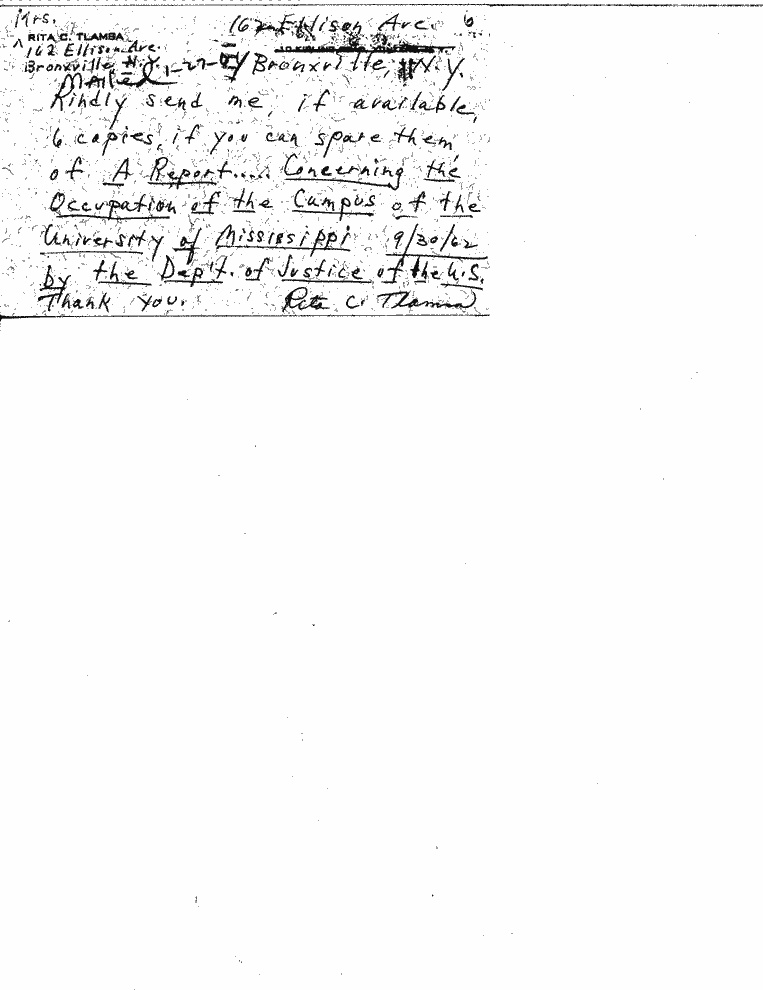 Mrs.
RITA C. TLAMBA
162 Ellison Ave.
Bronxville, N.Y.
162 Ellison Ave.
6
Bronxville, N.Y.
Mailed 1-27-
Kindly send me, if available,
6 copies, if you can spare them,
of A Report.... Concerning the
Occupation of the Campus of the
University of Mississippi 9/30/62
by the Dep't. of Justice of the U.S.
Thank you. Rita C. Tlamba